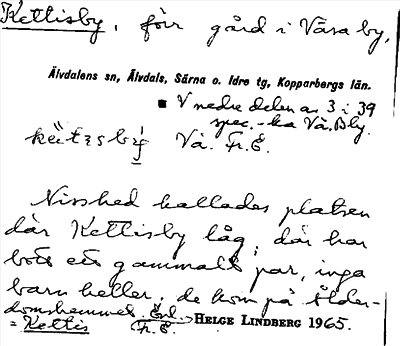 Kettisby, förr gård i Våsa by,
Älvdalens sn, Älvdals, Särna o. Idre tg, Kopparbergs län.
■ V nedre delen av 3 i 39
spec.-ka Vå. Bly.
Vå. Fr. E.
Nisshed kallades platsen
där Kettisby låg, där har
bott ett gammalt par, inga
barn heller, de kom på ålder-
domshemmet. Enl.
= Kettis Fr. E. HELGE LINDBERG 1965.